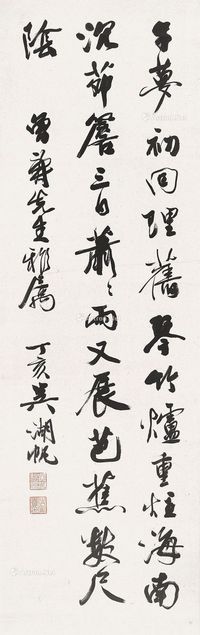 午夢初回理舊琴竹爐重炷海南
沉茆簷三日蕭〻雨又展芭蕉數尺
陰
曾蔚先生雅屬
丁亥吳湖帆